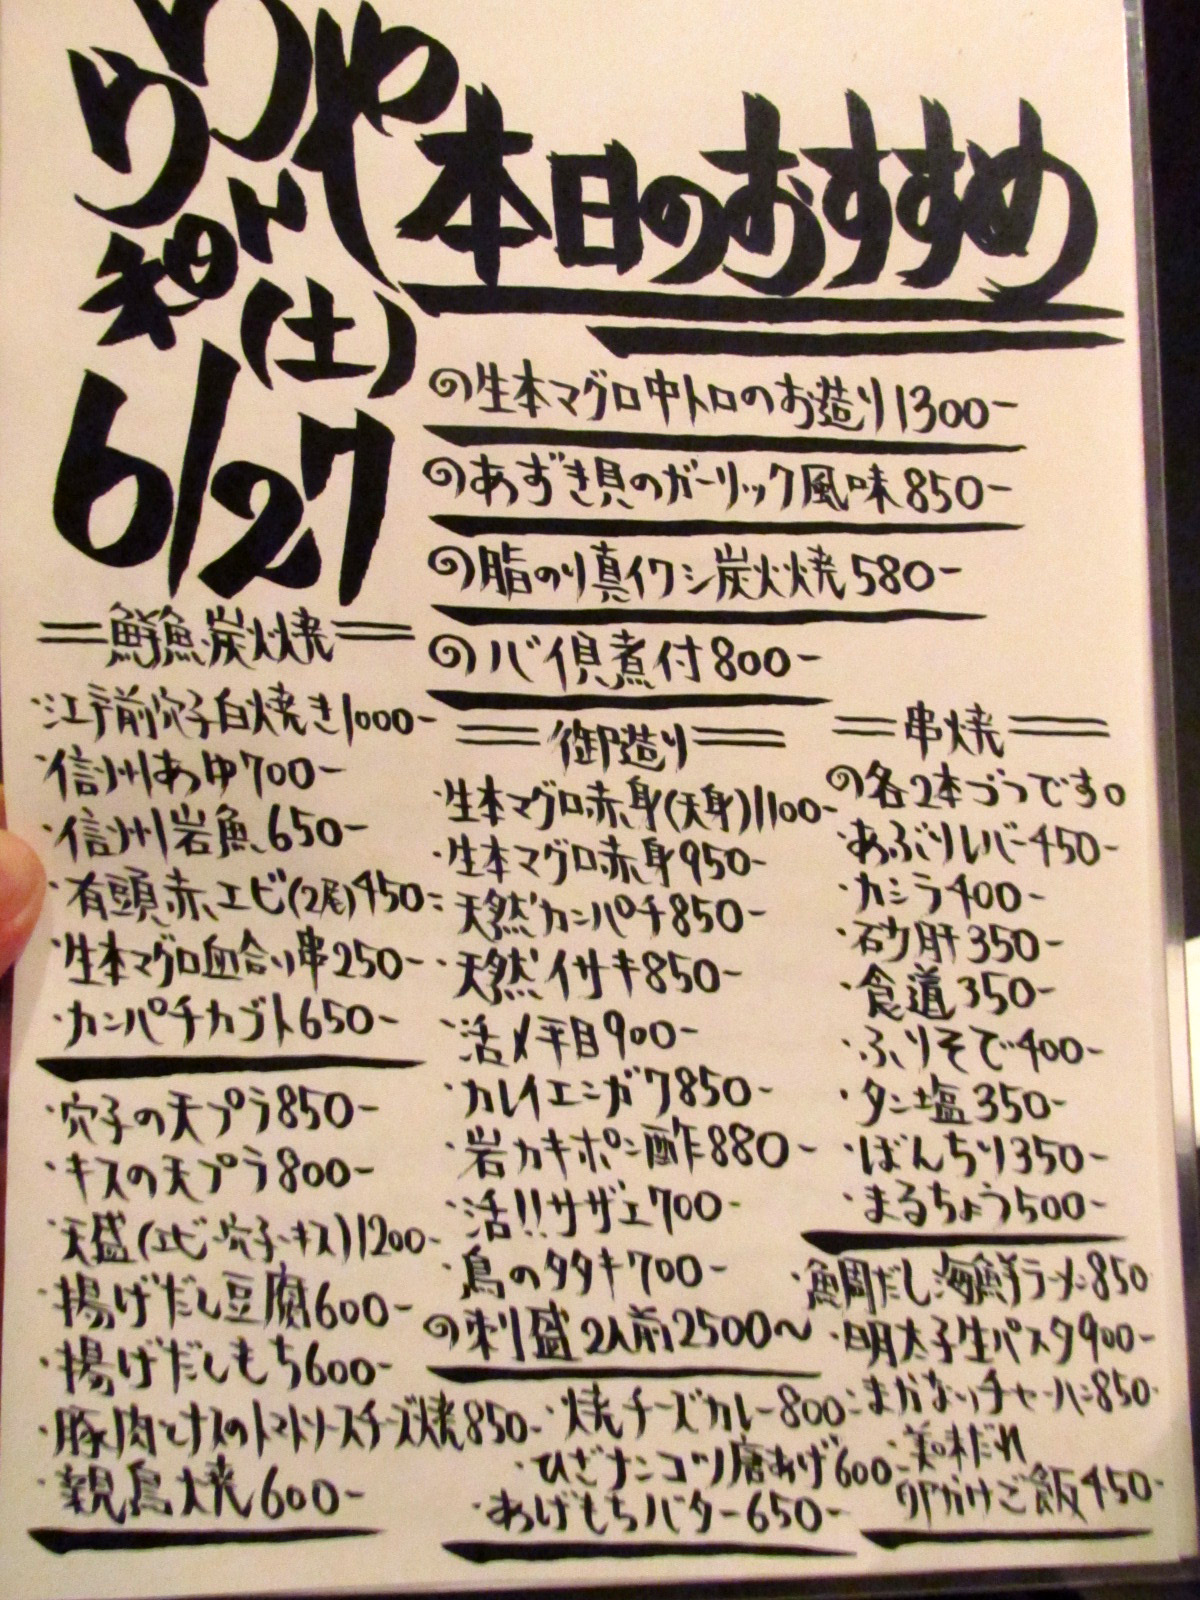 本日のおすすめ
(土)
6/27
の生本マグロ中トロのお造り1300-
のあずき貝のガーリック風味850-
の脂のり真イワシ炭火焼580-
煮付800-
=鮮魚炭火焼=
・江戸前穴子白焼き1000-
・信州あゆ700-
・信州岩魚650-
・有頭赤エビ(2尾)450-
・生本マグロ血合い串250-
・カンパチカブト650-
・穴子の天プラ850-
・キスの天プラ800-
・天盛(エビ・穴子・キス)1200-
・揚げだし豆腐600-
・揚げだしもち600-
・豚肉とナスのトマトソースチーズ焼850-
・親鳥焼600-
=御造り=
・生本マグロ赤身(天身)1100-
・生本マグロ赤身950-
・天然カンパチ850-
・天然イサキ850-
・活〆平目900-
・カレイエンガワ850-
・岩カキポン酢880-
・活!!サザエ700-
・鳥のタタキ700-
の刺盛2人前2500〜
=串焼=
の各2本づつです。
・あぶりレバー450-
・カシラ400-
・砂肝350-
・食道350-
・ふりそで400-
・タン塩350-
・ぼんちり350-
・まるちょう500-
・魚周だし海鮮ラーメン850
・明太子生パスタ900-
・まかないチャーハン850-
・美味だれ
卵かけご飯450-
・焼チーズカレー800-
・ひざナンコツ唐あげ600-
・あげもちバター650-